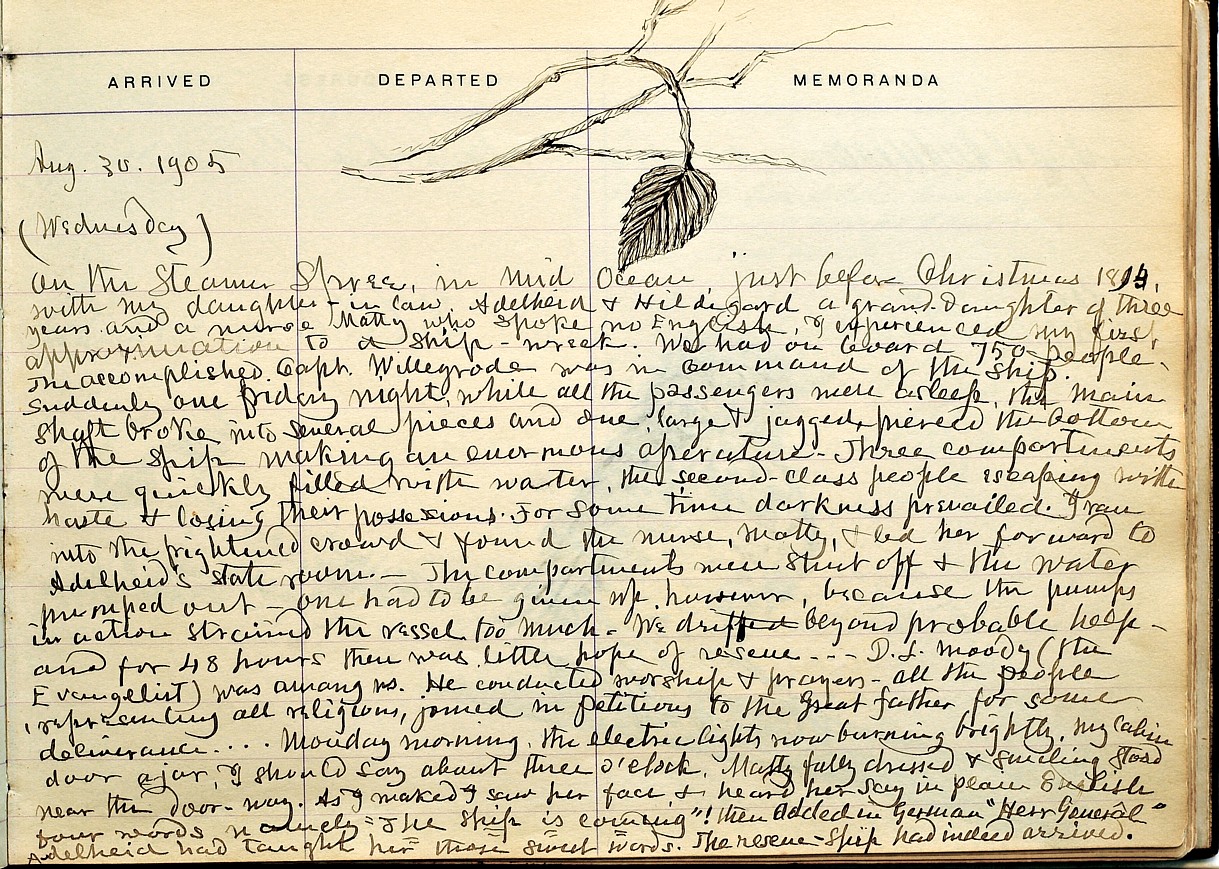 ARRIVED DEPARTED MEMORANDA
Aug. 30. 1905
(Wednesday)
On the Steamer Spree, in mid Ocean, just before Christmas 18
with my daughter-in-law, Adelheid & Hildegard a grand-daughter of three
years and a nurse Matty who spoke no English, I experienced my first
approximation to a ship-wreck. We had on board 750 people.
The accomplished Capt. Willegrode was in command of the ship.
Suddenly one friday night, while all the passengers were asleep, the main
shaft broke into several pieces and one, large & jagged, pierced the bottom
of the ship making an enormous aperature - Three compartments
were quickly filled with water, the second-class people escaping with
haste & losing their possessions. For some time darkness prevailed. I ran
into the frightened crowd & found the nurse, Matty, & led her forward to
Adelheid's state room. - The compartments were shut off & the water
pumped out - one had to be given up, however, because the pumps
in action strained the vessel too much - We drifted beyond probable help -
and for 48 hours there was little hope of rescue --- D. L. Moody (the
Evangelist) was among us. He conducted worship & prayers - all the people
representing all religions, joined in petitions to the Great father for some
deliverance.... Monday morning, the electric lights now burning brightly, my cabin
door ajar, I should say about three o'clock, Matty fully dressed & smiling stood
near the door-way. As I waked I saw her face & heard her say in plain English
four words namely "The ship is coming"! then added in German "Herr General"
Adelheid had taught her these sweet words. The rescue-ship had indeed arrived.